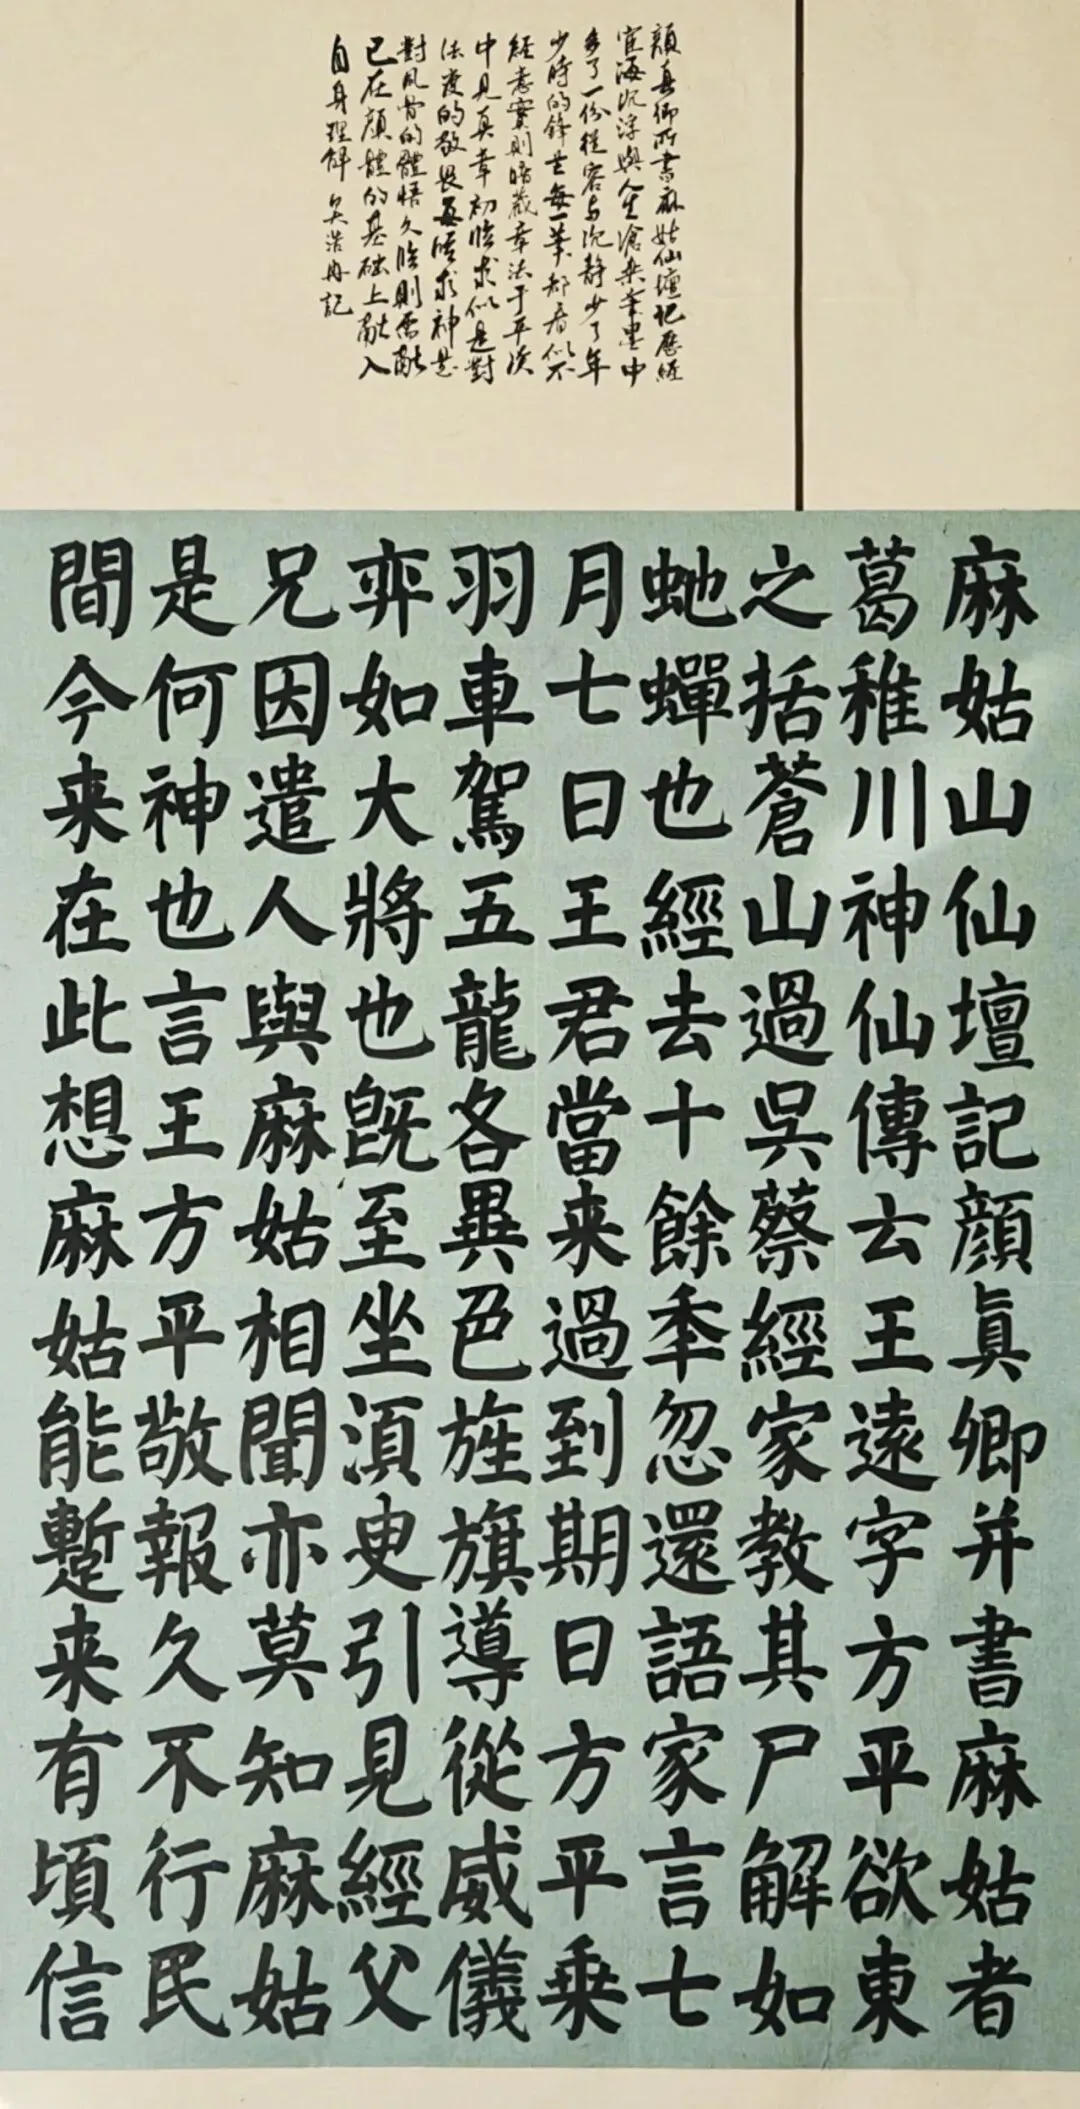 顏真卿所書麻姑仙壇記歷經
宦海沉浮與人生滄桑筆墨中
多了一份從容與沉靜少了年
少時的鋒芒每一筆都看似不
經意實則暗藏章法于平淡
中見真章初臨求似是對
法度的敬畏再臨求神是
對風骨的體悟久臨則需融
已在顏體的基础上融入
自身理解 吴浩冉記
麻姑山仙壇記顏真卿并書麻姑者
葛稚川神仙傳云王遠字方平欲東
之括蒼山過吳蔡經家教其尸解如
虵蟬也經去十餘秊忽還語家言七
月七日王君當来過到期日方平乗
羽車駕五龍各異色旌旗導從威儀
弈如大將也旣至坐湏臾引見經父
兄因遣人與麻姑相聞亦莫知麻姑
是何神也言王方平敬報久不行民
間今来在此想麻姑能蹔来有頃信